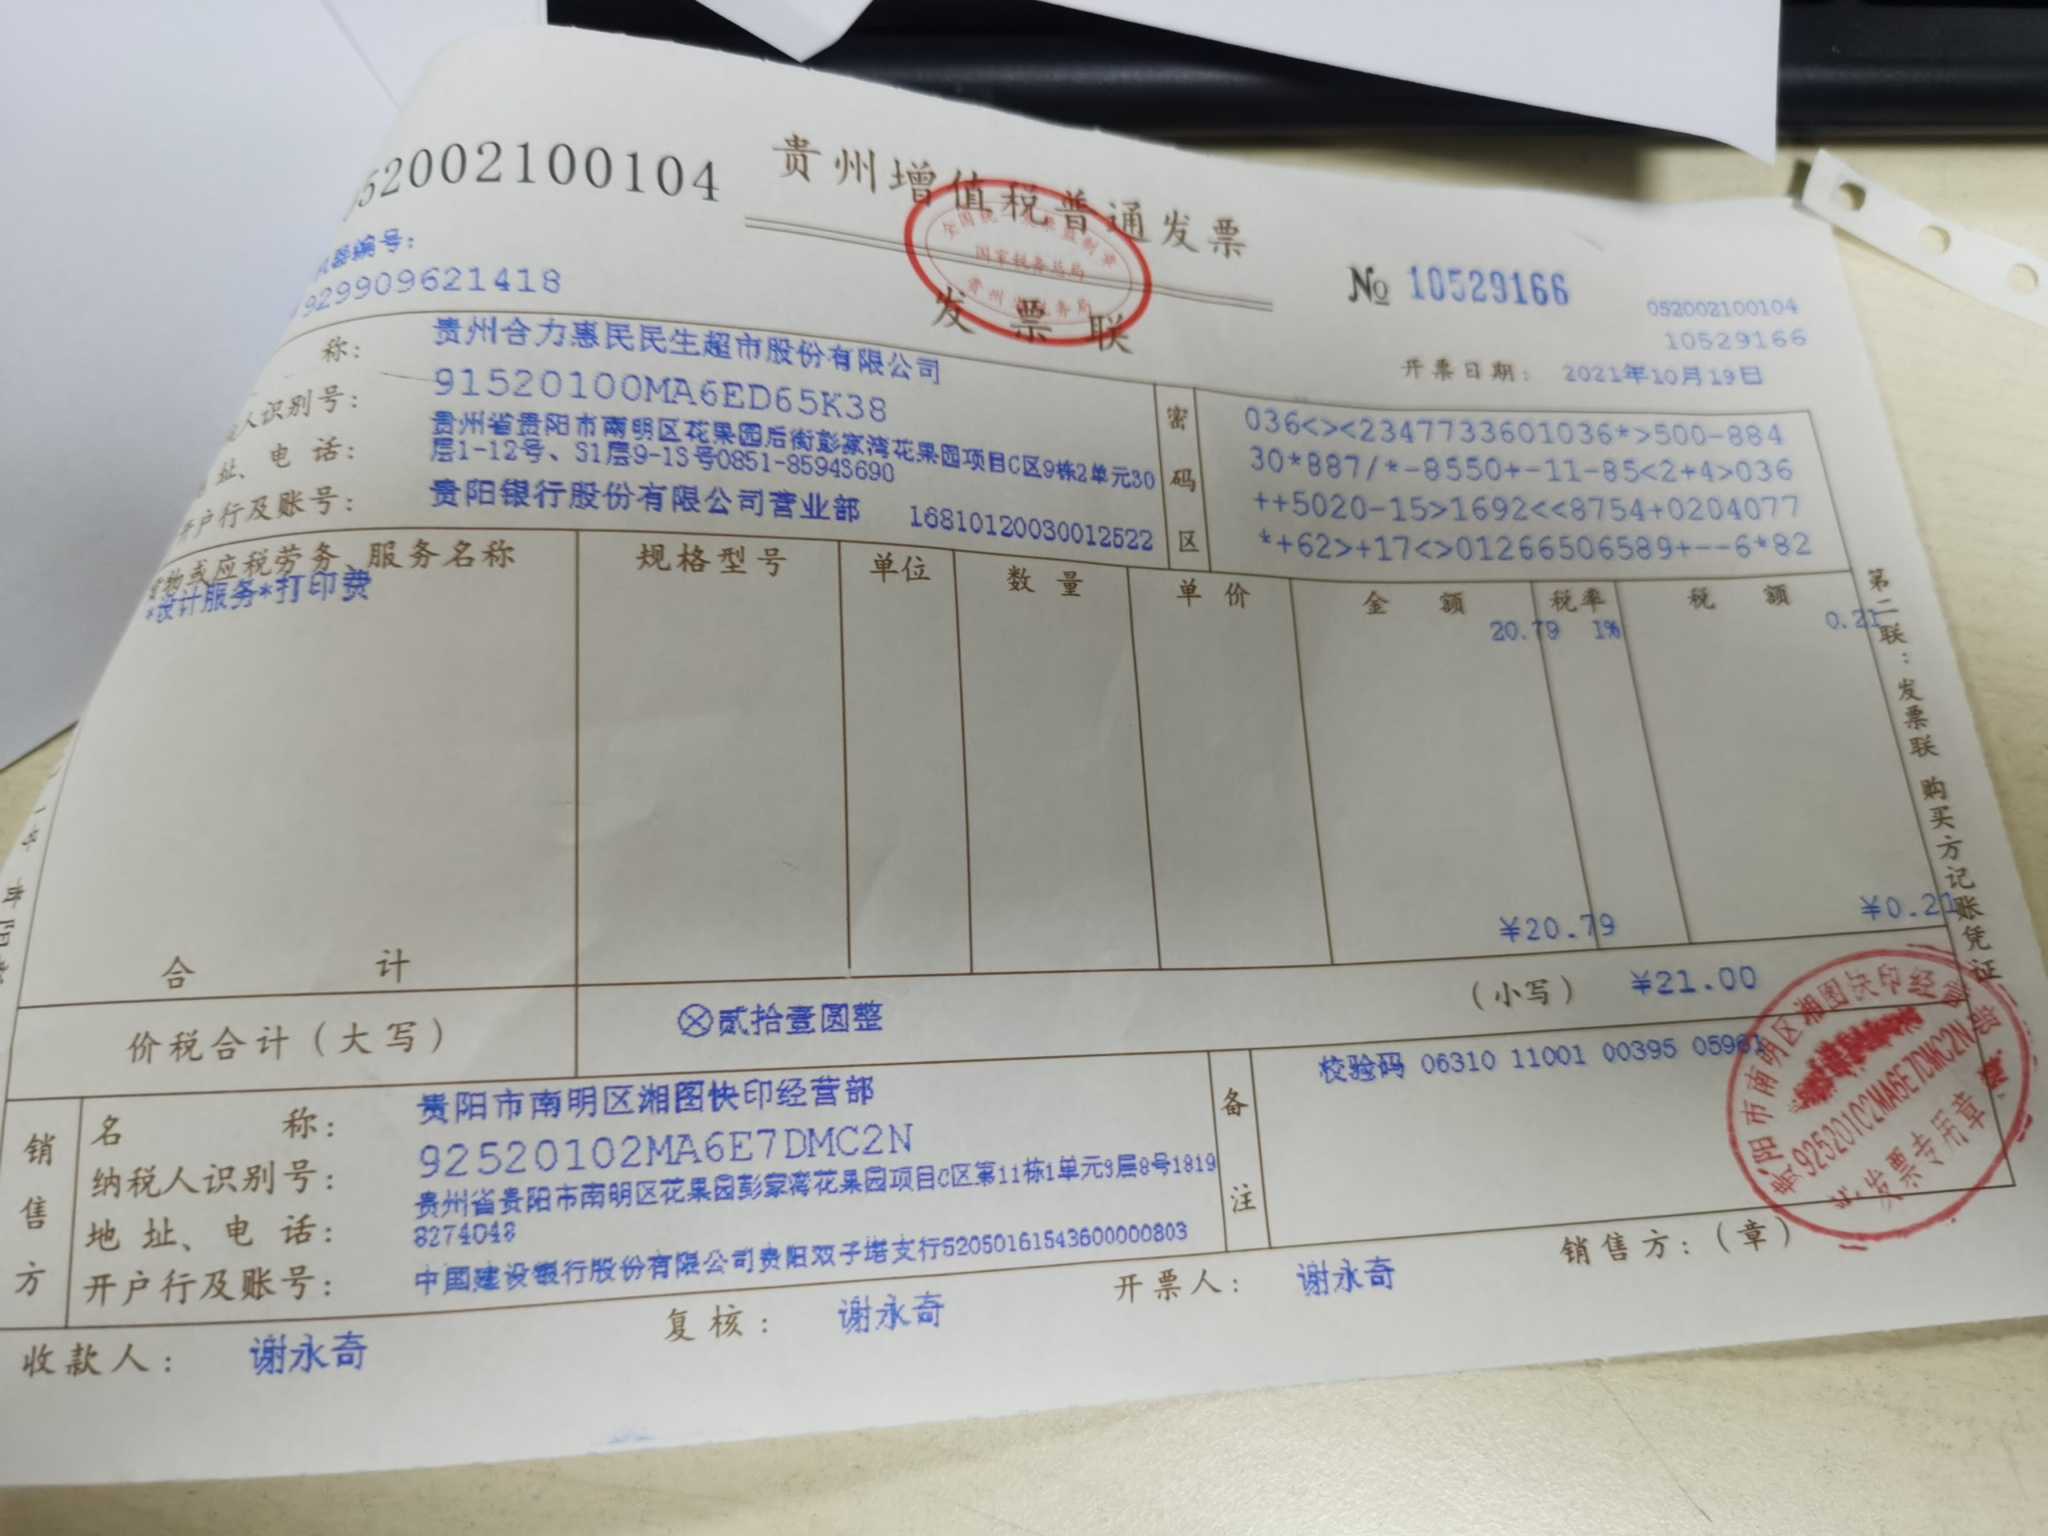 052002100104
贵州增值税普通发票
发票联
国家税务总局
№ 10529166
052002100104
10529166
机器编号:
929909621418
开票日期: 2021年10月19日
称: 贵州合力惠民民生超市股份有限公司
人识别号: 91520100MA6ED65K38
址、电话: 贵州省贵阳市南明区花果园后街彭家湾花果园项目C区9栋2单元30
层1-12号、31层9-13号0851-85943690
开户行及账号: 贵阳银行股份有限公司营业部 16810120030012522
密码区
036<><2347733601036*>500-884
30*887/*-8550+-11-85<2+4>036
++5020-15>1692<<8754+0204077
*+62>+17<>01266506589+--6*82
货物或应税劳务、服务名称 规格型号 单位 数量 单价 金额 税率 税额
*设计服务*打印费 20.79 1% 0.21
合计 ¥20.79 ¥0.21
价税合计(大写) ⊗贰拾壹圆整 (小写) ¥21.00
销售方
名称: 贵阳市南明区湘图快印经营部
纳税人识别号: 92520102MA6E7DMC2N
地址、电话: 贵州省贵阳市南明区花果园彭家湾花果园项目C区第11栋1单元3层8号1819
8274048
开户行及账号: 中国建设银行股份有限公司贵阳双子塔支行52050161543600000803
备注
校验码 06310 11001 00395 05961
收款人: 谢永奇 复核: 谢永奇 开票人: 谢永奇 销售方:(章)
第二联:发票联 购买方记账凭证
贵阳市南明区湘图快印经营部
92520102MA6E7DMC2N
发票专用章